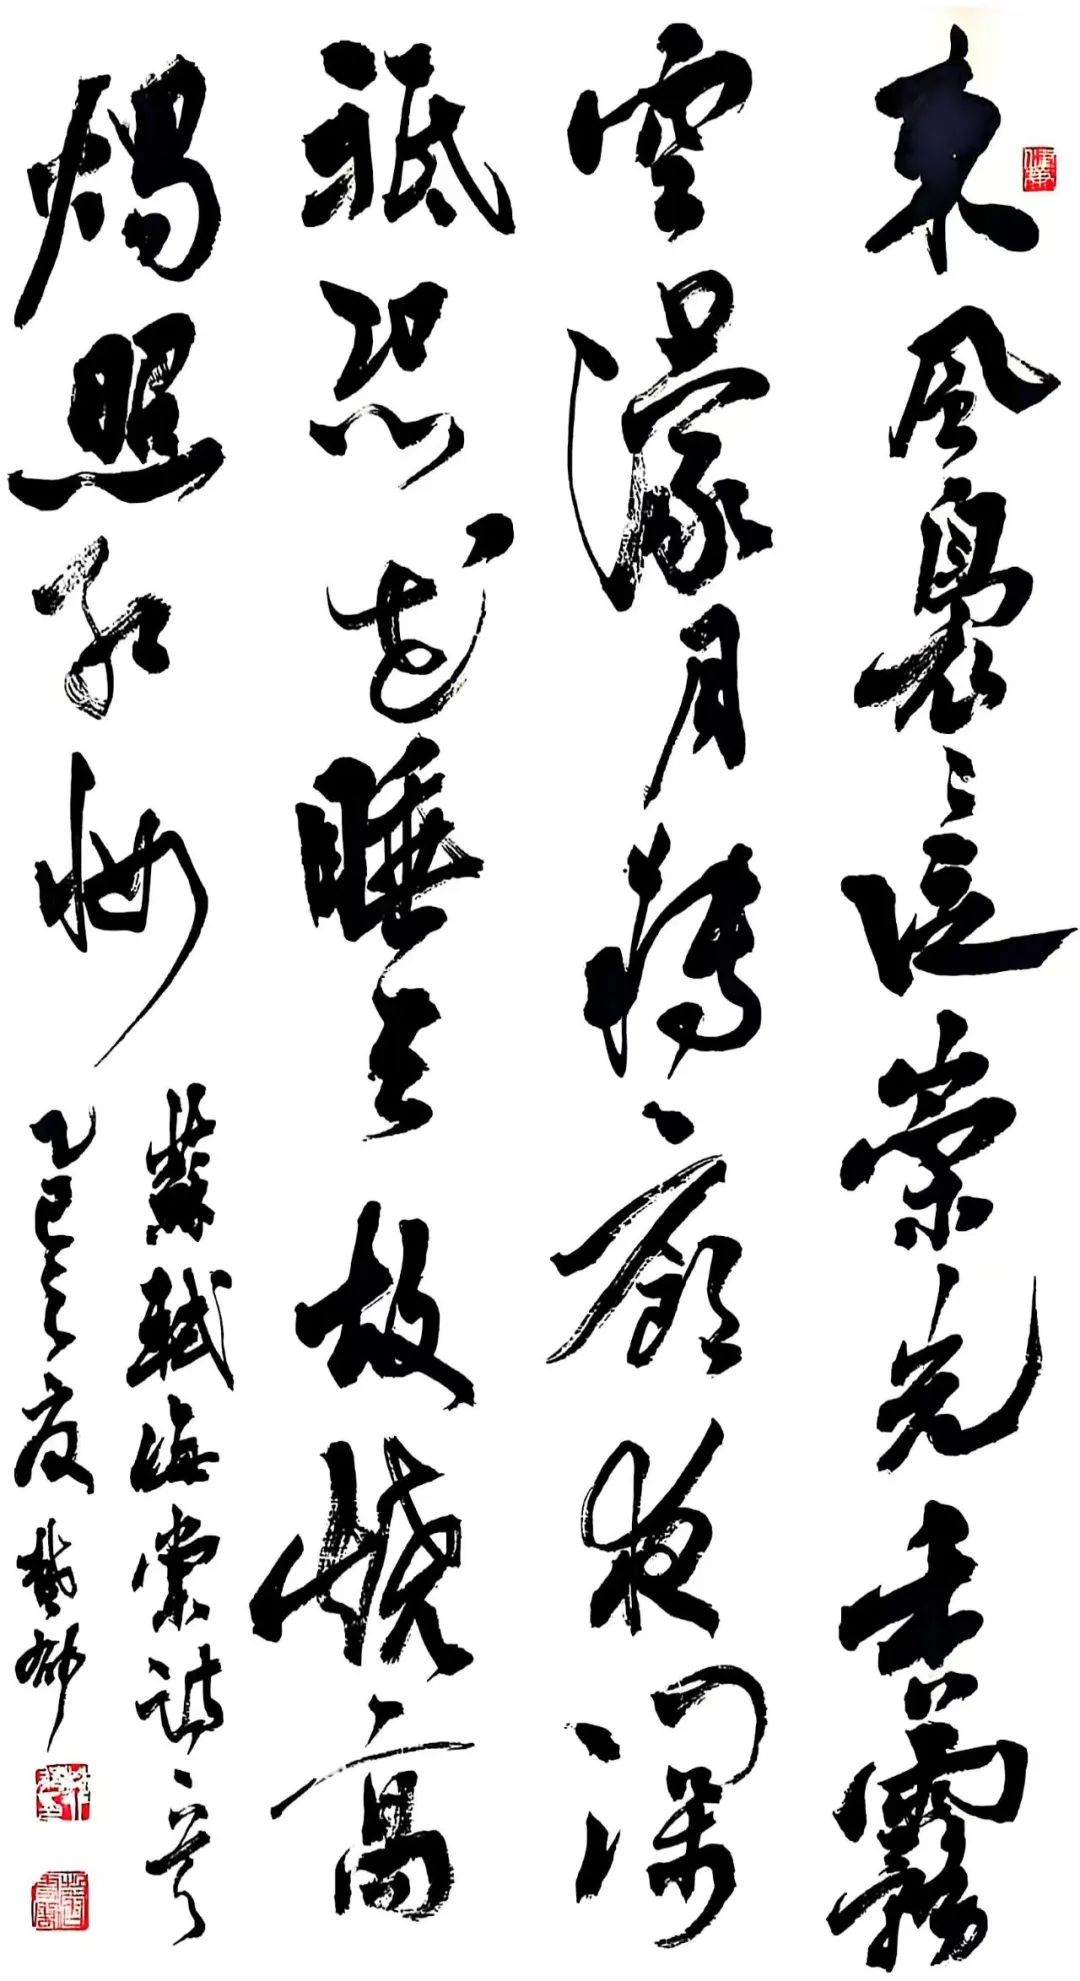 東風裊々泛崇光香霧
空濛月轉廊夜深
祗恐花睡去故燒高
燭照紅妝
蘇軾海棠詩
乙巳之夏